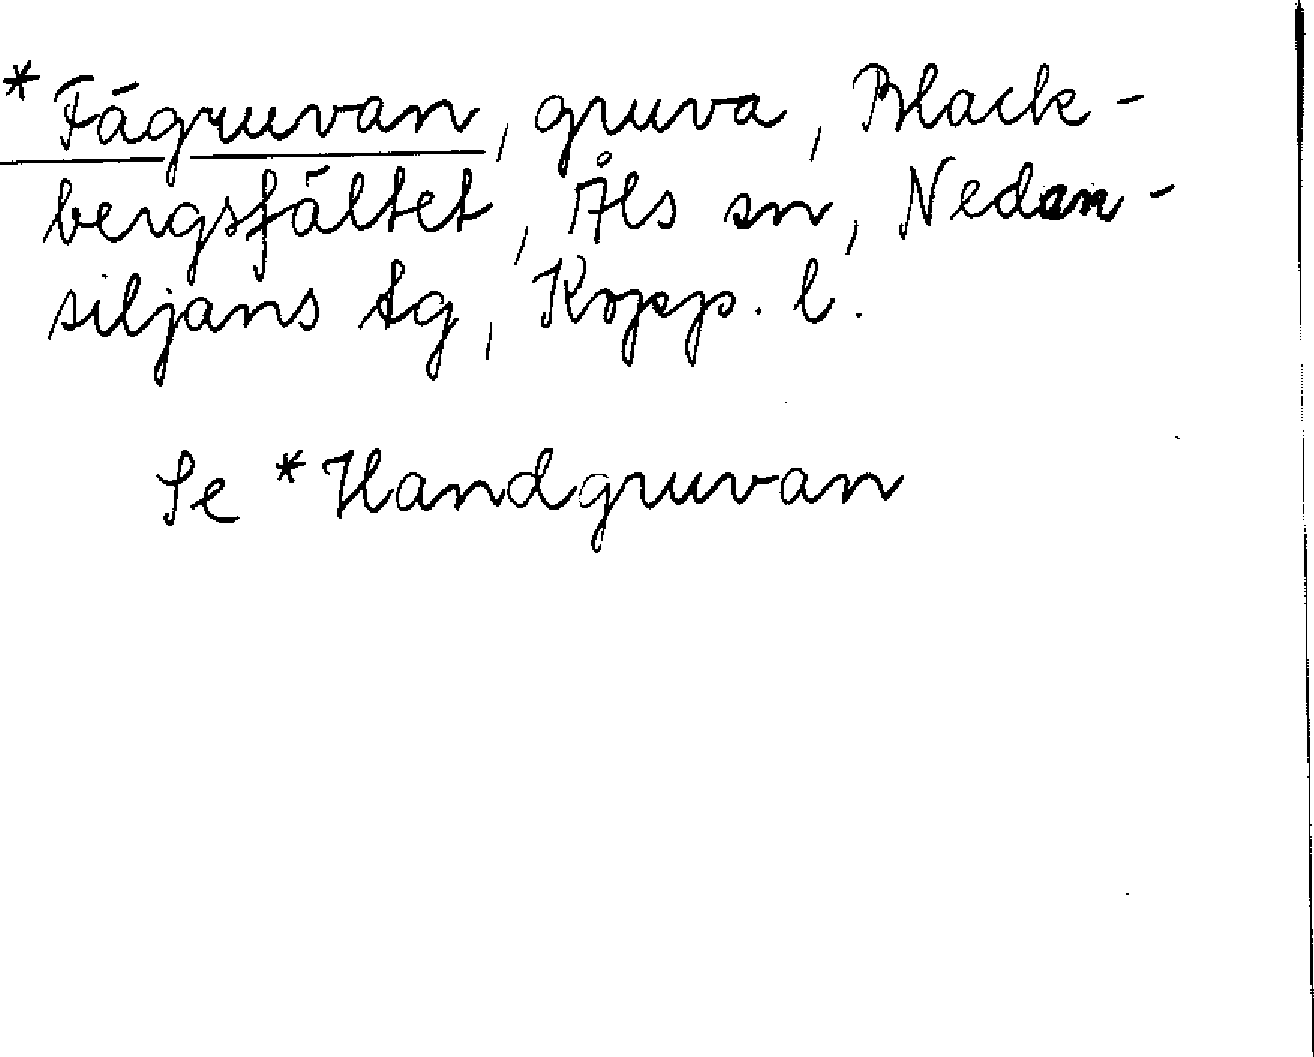 *Fägruvan, gruva, Black-
bergsfältet, Åls sn, Nedan-
siljans tg, Kopp. l.
Se *Handgruvan